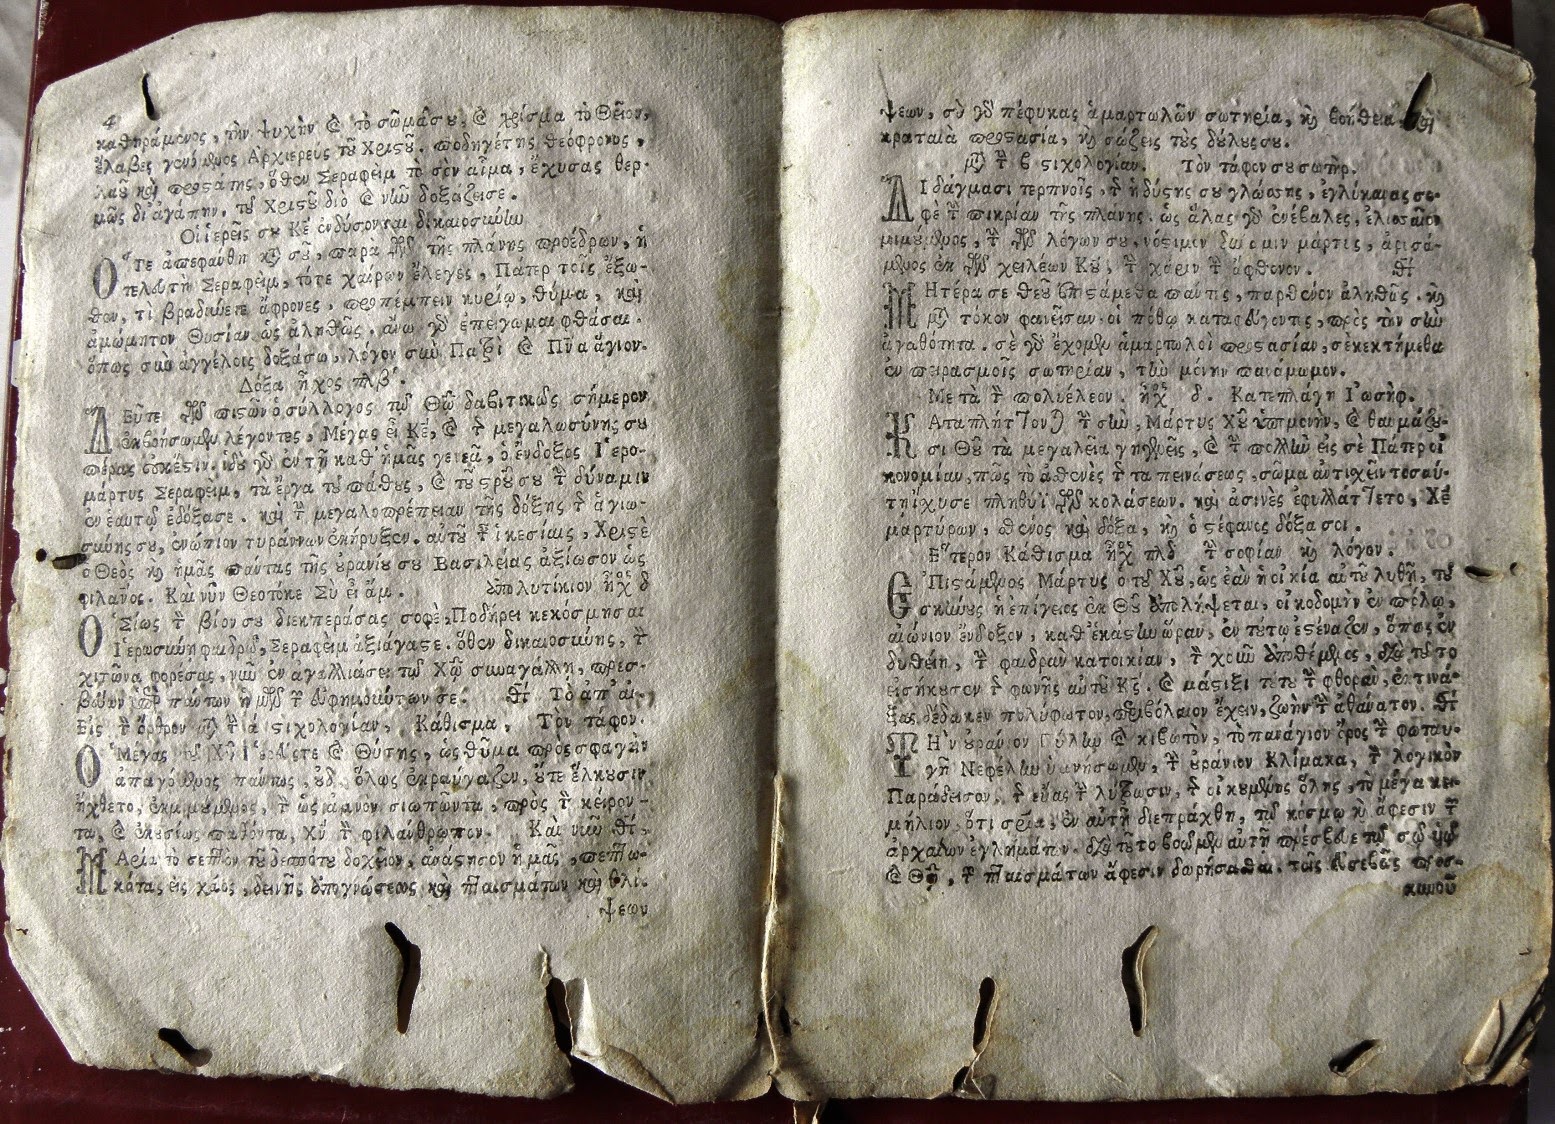 4
καθηράμενος, τὴν ψυχὴν ϗ τὸ σῶμάσου, ϗ χρίσμα τὸ Θεῖον,
ἔλαβες γενόμενος Ἀρχιερεὺς τοῦ Χριστοῦ. ποδηγέτης θεόφρονος,
λαοῦ καὶ προστάτης, ὅθεν Σεραφεὶμ τὸ σὸν αἷμα, ἔχυσας θερ-
μῶς δι' ἀγάπην, τοῦ Χριστοῦ διὸ ϗ νῦν δοξάζεισε.
Οἱ ἱερεῖς σου Κε ἐνδύσονται δικαιοσύνην
Ὅτε ἀπεφάνθη κατὰ σοῦ, παρα τῶν τῆς πλάνης προέδρων, ἡ
τελευτὴ Σεραφεὶμ, τότε χαίρων ἔλεγες, Πάτερ τοῖς ἔξω-
θεν, τὶ βραδύνετε ἄφρονες, προπέμπειν κυρίῳ, θύμα, καὶ
ἀμώμητον Θυσίαν ὡς ἀληθῶς. ἄνω γὰρ ἐπείγομαι φθάσαι.
ὅπως σὺν ἀγγέλοις δοξάσω, λόγον σὺν Πατρὶ ϗ Πνα ἅγιον.
Δόξα ἦχος πλβ'.
Δεῦτε τῶν πιστῶν ὁ σύλλογος τῷ Θῷ δαβιτικῶς σήμερον
ἐκβοήσωμεν λέγοντες, Μέγας εἶ Κε, ϗ τῆς μεγαλωσύνης σου
πέρας οὐκέστιν. ἰδοὺ γὰρ ἐν τῇ καθ' ἡμᾶς γενεᾷ, ὁ ἔνδοξος Ἱερο-
μάρτυς Σεραφεὶμ, τὰ ἔργα τοῦ πάθους, ϗ τοῦ σταυροῦ σου τὴν δύναμιν
ἐν ἑαυτῷ ἐδόξασε. καὶ τὴν μεγαλοπρέπειαν τῆς δόξης τῆς ἁγιω-
σύνης σου, ἐνώπιον τυράννων ἐκήρυξεν. αὐτοῦ ταῖς ἱκεσίαις, Χριστὲ
ὁ Θεὸς ϗ ἡμᾶς πάντας τῆς οὐρανίου σου Βασιλείας ἀξίωσον ὡς
φιλανος. Και νῦν Θεοτόκε Σὺ εἶ ἄμ. Ἀπολυτίκιον ἦχ δ
Ὁσίως τὸν βίον σου διεκπεράσας σοφὲ, Ποδήρει κεκόσμησαι
Ἱερωσύνη φαιδρῷ, Σεραφεὶμ ἀξιάγαστε. ὅθεν δικαιοσύνης, τὸν
χιτῶνα φορέσας, νῦν ἐν ἀγαλλιάσει τῷ Χῷ συναγάλλῃ, πρεσ-
βεύων ὑπὲρ πάντων ἡμῶν τῶν εὐφημούντων σε. Θεοτ Τὸ ἀπ' αἰ-
Εἰς τὸν ὄρθρον μετὰ τὴν α στιχολογίαν, Κάθισμα, Τὸν τάφον.
Ὁ Μέγας τοῦ Χῦ ϗ Θύτης, ὡς θῦμα προεσφαγὴν
ἀπαγόμενος παντως, οὐδ' ὅλως ἐκραύγαζεν, οὔτε ἕλκυσιν
ἤχθετο, ἐκμιμούμενος, τὸν ὡς ἀμνὸν σιωπῶντα, πρὸς τὸν κείρον-
τα, ϗ ἑκουσίως παθόντα, Χν τὸν φιλάνθρωπον. Καὶ νῦν Θεοτ,
Μαρία τὸ σεπτὸν τοῦ δεσπότου δοχεῖον, ἀνάστησον ἡμᾶς, πεπτω-
κότας εἰς χάος, δεινῆς ἀπογνώσεως καὶ πταισμάτων καὶ θλί-
ψεων
ψεων, σὺ γὰρ πέφυκας ἁμαρτωλῶν σωτηρία, ϗ βοήθεια καὶ
κραταιὰ προστασία, ϗ σώζεις τοὺς δούλουςσου.
μετὰ τὴν β στιχολογίαν. Τὸν τάφον σου σωτὴρ.
Διδάγμασι τερπνοῖς, τῆς ἡδύτης σου γλώσσης, ἐγλύκανας σα-
φὲ τὴν πικρίαν τῆς πλάνης. ὡς ἅλας γὰρ ἐνέβαλες,
μιμούμενος, τὸν τῶν λόγων σου, νόστιμον δύναμιν μάρτυς, ἀρυσά-
μενος ἐκ τῶν χειλέων Κυ, τὴν χάριν τὴν ἄφθονον. Θεοτ
Μητέρα σε Θεοῦ ἐπιστάμεθα πάντες, παρθένον ἀληθῶς. ϗ
μετὰ τόκον φανεῖσαν. οἱ πόθῳ καταφεύγοντες, πρὸς τὴν σὴν
ἀγαθότητα. σὲ γὰρ ἔχομεν ἁμαρτωλοὶ προστασίαν, σὲ κεκτήμεθα
ἐν πειρασμοῖς σωτηρίαν, τὴν μόνην πανάμωμον.
Μετὰ τὸν πολυέλεον. ἦχ δ. Κατεπλάγη Ἰωσὴφ.
Καταπλήττονται τὴν σὴν, Μάρτυς Χυ ὑπομονὴν, ϗ θαυμάζου-
σι Θυ τὰ μεγαλεῖα γηγενεῖς, ϗ τὴν πολλὴν εἰς σὲ Πάτερ οἰ
κονομίαν, πῶς τὸ ἀσθενὲς τῆς ταπεινώσεως, σῶμα ἀντισχεῖν τοσαύ-
τη ἴχυσε πληθύϊ τῶν κολάσεων. καὶ ἀσινὲς ἐφυλάττετο, Χε
μαρτύρων, σθένος καὶ δόξα, ϗ ὁ στέφανος δόξα σοι.
Ἕτερον Κάθισμα ἦχ πλδ τὴν σοφίαν ϗ λόγον.
Ἐπιστάμενος Μάρτυς ὁ τοῦ Χυ, ὡς ἐὰν ἡ οἰκία αὐτοῦ λυθῇ, τοῦ
σκήνους ἡ ἐπίγειος ἐκ Θυ ἀπολήψεται, οἰκοδομὴν ἐν πόλῳ,
αἰώνιον ἔνδοξον, καθ' ἑκάστην ὥραν, ἐν τούτῳ ἐστέναζεν, ὅπως ἐν
δυθείη, τὴν φαιδρὰν κατοικίαν, τὸν χοῦν ἀποθέμενος, διὰ τοῦτο
εἰσήκουσεν τῆς φωνῆς αὐτοῦ Κς. ϗ μάστιξι τούτου τὴν φθορὰν, ἐκτινά-
ξας δέδωκεν πολύφωτον, περιβόλαιον ἔχειν, ζωὴν τὴν ἀθάνατον. Θεοτ
Τὴν οὐράνιον Πύλην ϗ κιβωτὸν, τὸ πανάγιον ὄρος τὴν φωταυ-
γῆ Νεφέλην ὑμνήσωμεν, τὴν οὐράνιον Κλίμακα, τὸν λογικὸν
Παράδεισον, τῆς εὔας τὴν λύτρωσιν, τῆς οἰκουμένης ὅλης, τὸ μέγα κει-
μήλιον, ὅτι σωτηρία, ἐν αὐτῇ διεπράχθη, τῷ κόσμῳ ϗ ἄφεσιν τῶν
ἀρχαίων ἐγλημάτων. διὰ τοῦτο βοῶμεν αὐτῇ πρέσβευε τῷ σῷ ὑῷ
ϗ Θῷ, τῶν πταισμάτων ἄφεσιν δωρήσασθαι, τοῖς εὐσεβῶς προσ-
κυνοῦ